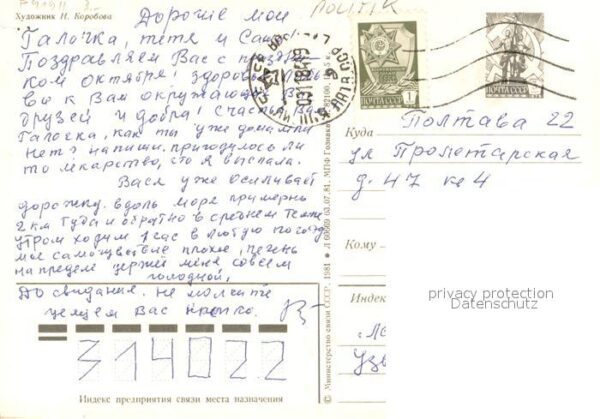 Художник Н. Коробова
Дорогие мои
Галочка, тетя и Саша!
Поздравляем Вас с праздни-
ком октября! здоровья
вы к Вам окружающ
друзей и добра! счастья
Галочка, как ты уже дома или
нет? напиши, пригодилось ли
то лекарство, что я выслала.
Вася уже осиливает
дорожку вдоль моря примерно
2 км туда и обратно в среднем темпе
утром ходим 1 час в любую погоду
мое самочувствие плохое, печень
на пределе держит меня совсем
голодной,
До свидания. не молчите
целуем Вас крепко.
ПОЧТА СССР 1
ПОЧТА СССР
Куда Полтава 22
ул Пролетарская
д. 47 кв 4
Кому
Индекс
privacy protection
Datenschutz
314022
Индекс предприятия связи места назначения
© Министерство связи СССР, 1981